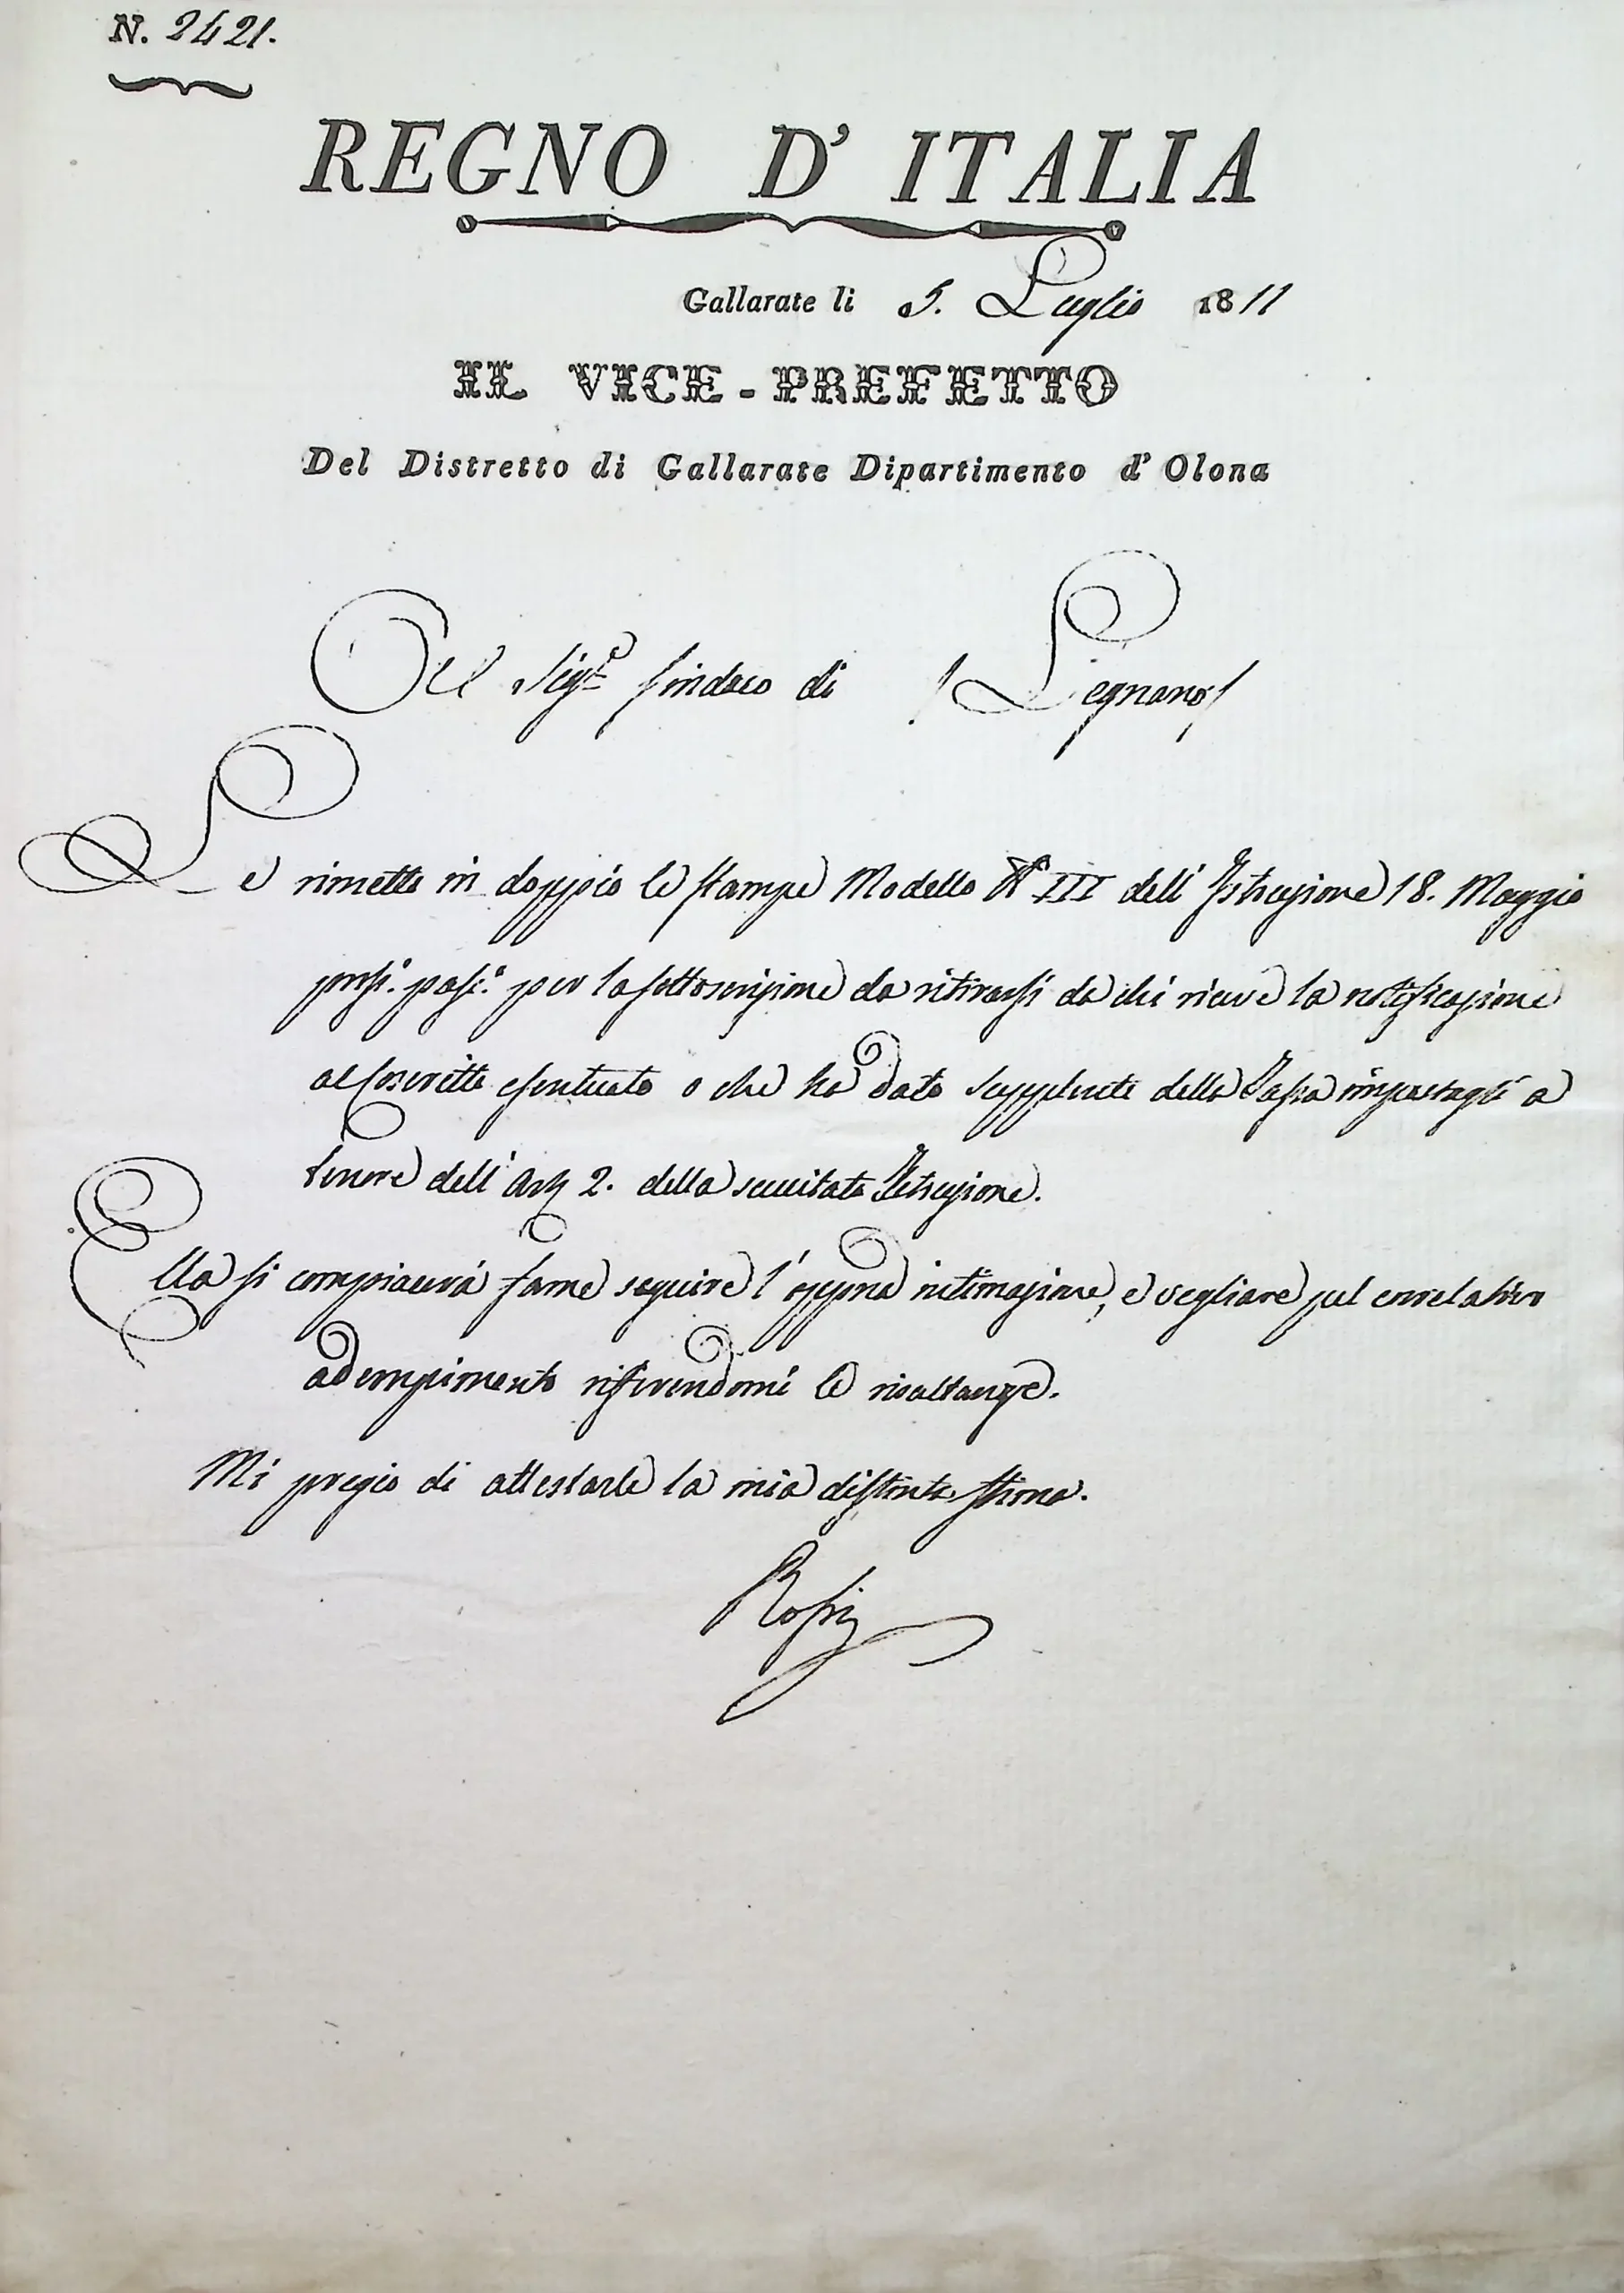 N. 2421.
REGNO D' ITALIA
Gallarate li 5. Luglio 1811
IL VICE-PREFETTO
Del Distretto di Gallarate Dipartimento d' Olona
Al Sig.re Sindaco di Legnano
Le rimetto in doppio le stampe Modello N° III dell' Istruzione 18. Maggio
pross.° pass.° per la sottoscrizione da ritirarsi da chi riceve la notificazione
al Coscritto esentuato o che ha dato supplente della Tassa impostagli a
tenore dell' Art. 2. della succitata Istruzione.
Ella si compiacerà farne seguire l' opportuna intimazione, e vegliare sul correlativo
adempimento riferendomi le risultanze.
Mi pregio di attestarle la mia distinta stima.
Rossi